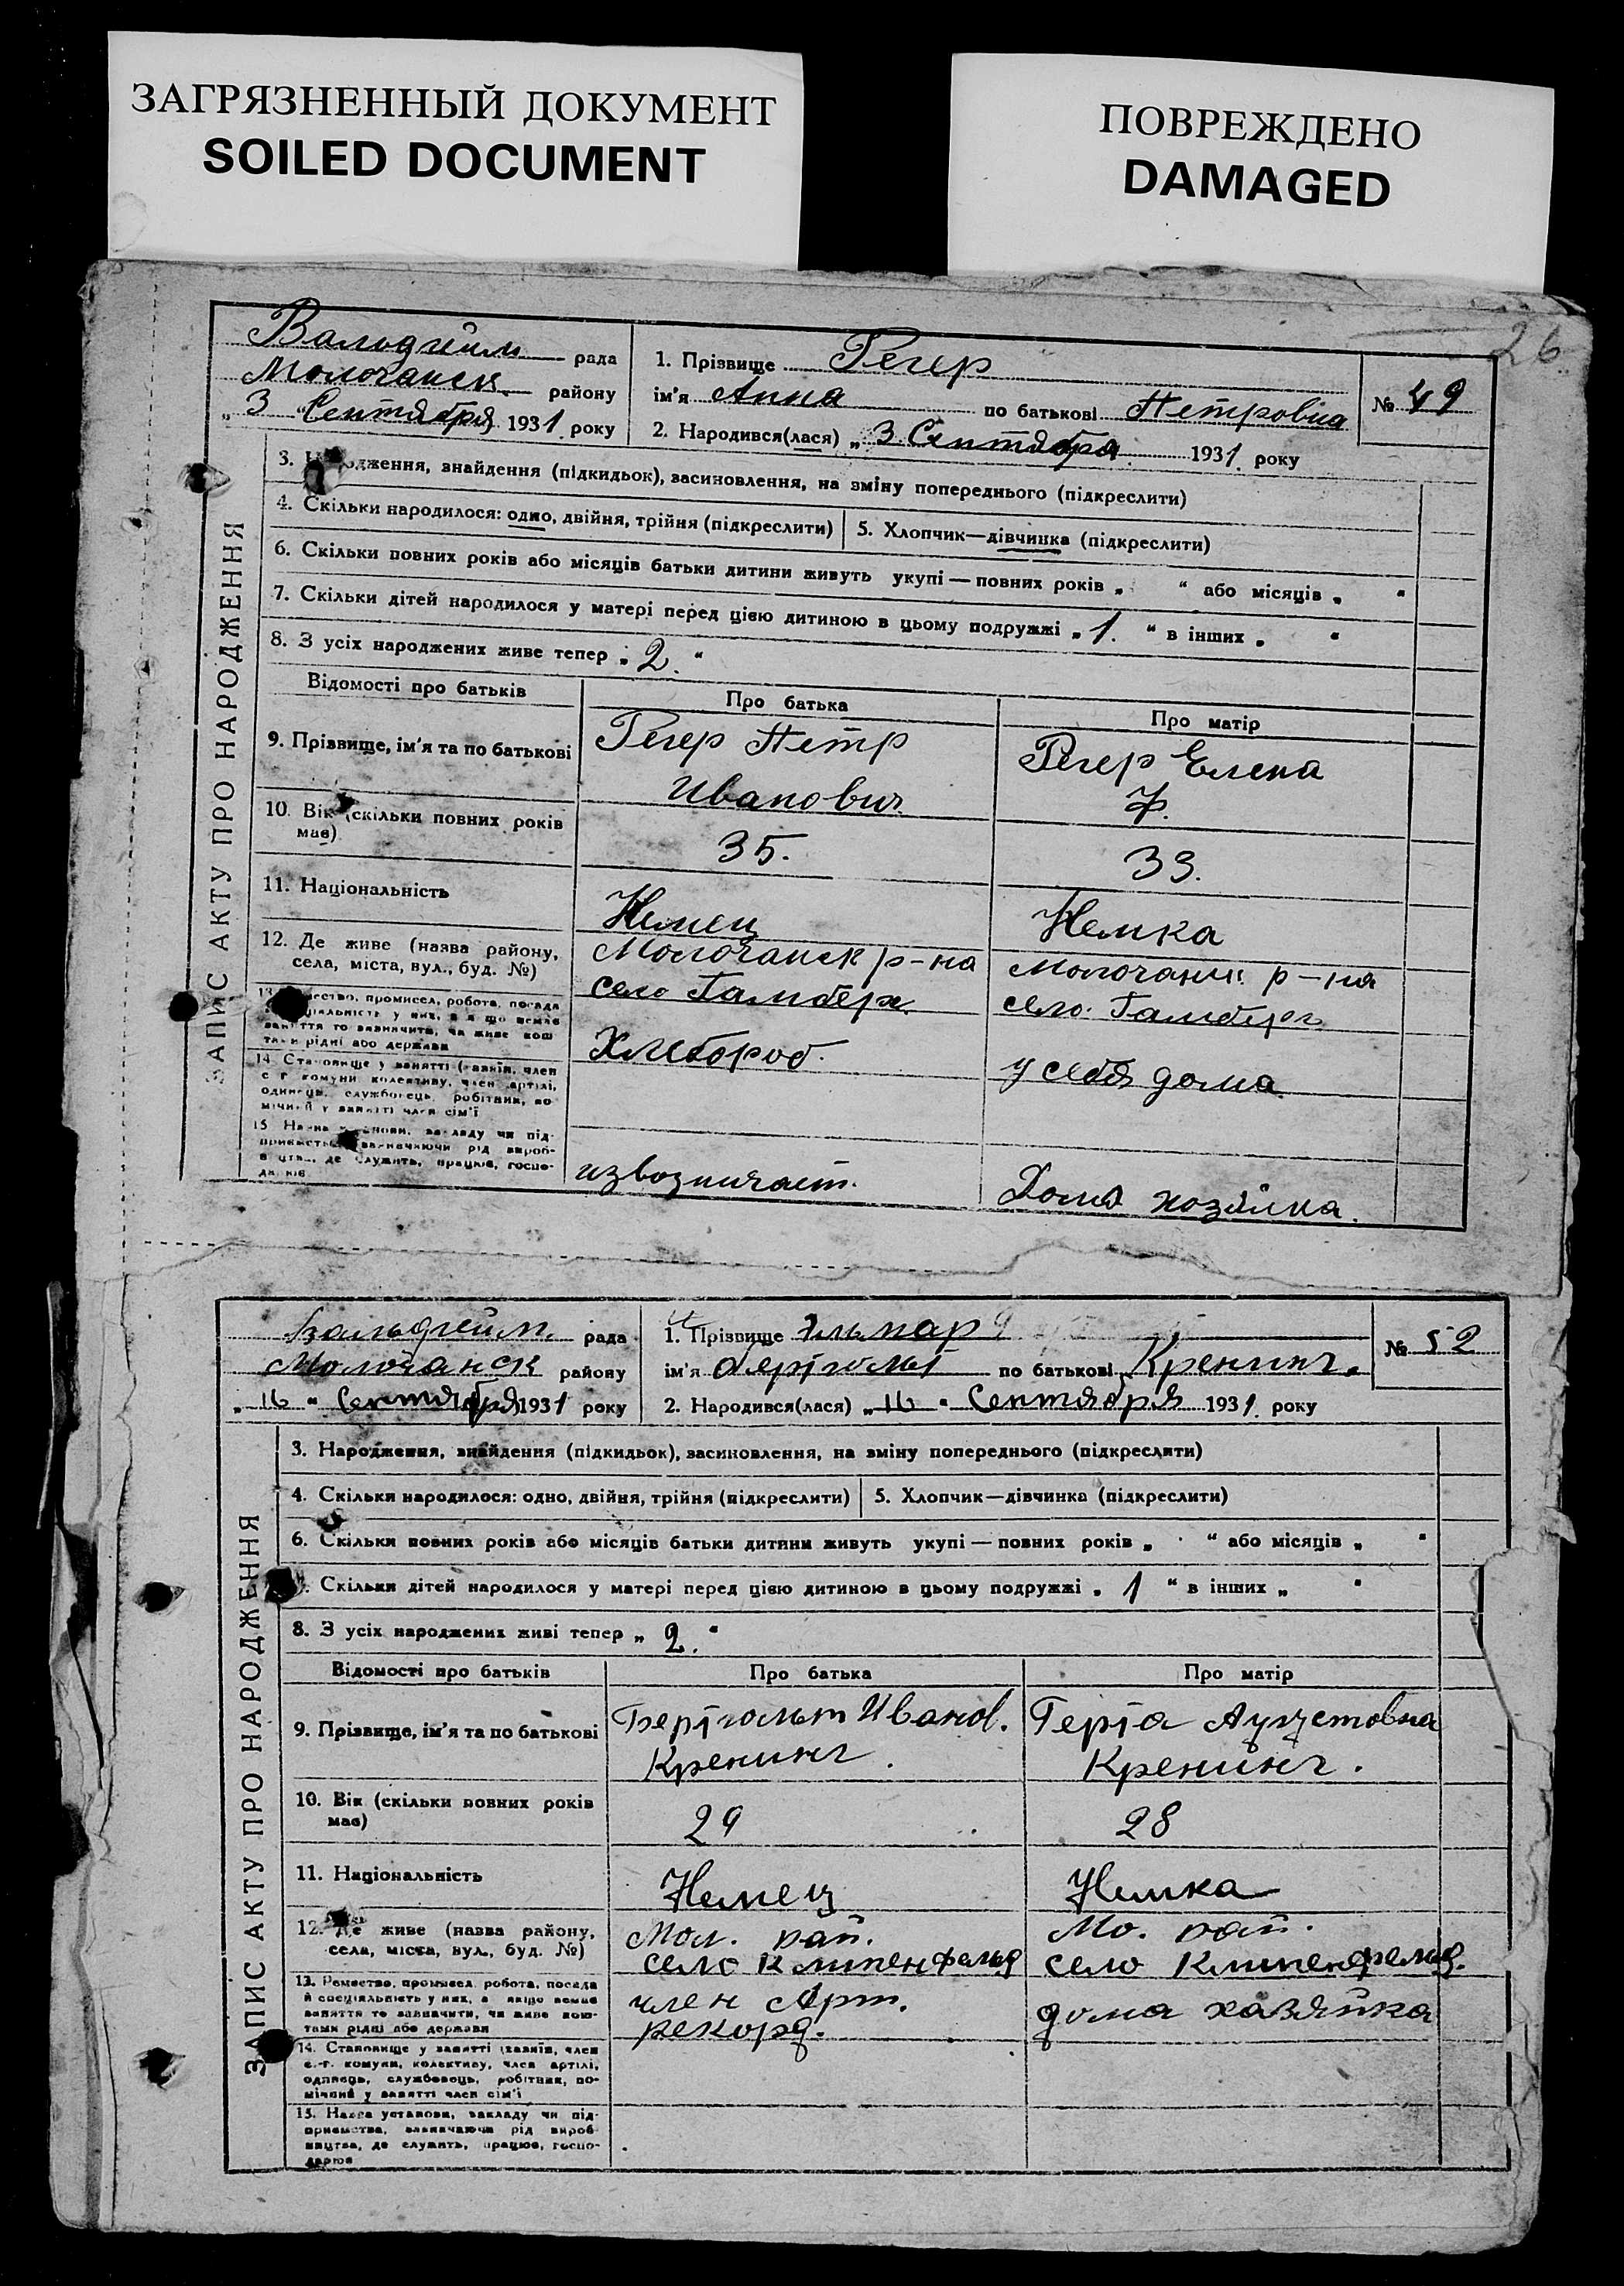 ЗАГРЯЗНЕННЫЙ ДОКУМЕНТ
SOILED DOCUMENT
ПОВРЕЖДЕНО
DAMAGED
26
Вальдгейм рада
Молочанск району
„ 3 “ Сентября 1931 року
1. Прізвище Регер
ім'я Анна по батькові Петровна
2. Народився(лася) „ 3 Сентября 1931 року
№ 49
ЗАПИС АКТУ ПРО НАРОДЖЕННЯ
3. Народження, знайдення (підкидьок), засиновлення, на зміну попереднього (підкреслити)
4. Скільки народилося: одно, двійня, трійня (підкреслити)
5. Хлопчик—дівчинка (підкреслити)
6. Скільки повних років або місяців батьки дитини живуть укупі — повних років „ “ або місяців „ “
7. Скільки дітей народилося у матері перед цією дитиною в цьому подружжі „ 1. “ в інших „ “
8. З усіх народжених живе тепер „ 2. “
Відомості про батьків
Про батька
Про матір
9. Прізвище, ім'я та по батькові
Регер Петр
Иванович
Регер Елена
Ф.
10. Вік (скільки повних років
має)
35.
33.
11. Національність
Немец
Немка
12. Де живе (назва району,
села, міста, вул., буд. №)
Молочанск р-на
село Гамберг.
Молочанск р-на
село. Гамберг
13. Ремество, промисел, робота, посада
й спеціяльність у них, а якщо немає
заняття то зазначити, чи живе кош
тами рідні або держави
Хлебороб.
у себя дома.
14. Становище у занятті (хазяїн, член
с.-г. комуни, колективу, член артілі,
одинець, службовець, робітник, по-
мічний у занятті член сім'ї
15. Назва установи, закладу чи під-
приємства, зазначаючи рід вироб-
ництва, де служить, працює, госпо-
дарює
извозничает.
Дома хозяйка.
Вальдгейм. рада
Молочанск району
„ 16 “ Сентября 1931 року
1. Прізвище Эльмар
ім'я по батькові Кренинг.
2. Народився(лася) „ 16 “ Сентября 1931. року
№ 52
ЗАПИС АКТУ ПРО НАРОДЖЕННЯ
3. Народження, знайдення (підкидьок), засиновлення, на зміну попереднього (підкреслити)
4. Скільки народилося: одно, двійня, трійня (підкреслити)
5. Хлопчик—дівчинка (підкреслити)
6. Скільки повних років або місяців батьки дитини живуть укупі — повних років „ “ або місяців „ “
7. Скільки дітей народилося у матері перед цією дитиною в цьому подружжі „ 1 “ в інших „ “
8. З усіх народжених живі тепер „ 2. “
Відомості про батьків
Про батька
Про матір
9. Прізвище, ім'я та по батькові
Бертгольт Иванов.
Кренинг.
Герта Аугустовна
Кренинг.
10. Вік (скільки повних років
має)
29
28
11. Національність
Немец
Немка
12. Де живе (назва району,
села, міста, вул., буд. №)
Мол. рай.
село Клипенфельд
Мо. рай.
село Клипенфельд.
13. Ремество, промисел, робота, посада
й спеціяльність у них, а якщо немає
заняття то зазначити, чи живе кош-
тами рідні або держави
член Арт.
рекорд.
дома хазяйка
14. Становище у занятті (хазяїн, член
с.-г. комуни, колективу, член артілі,
одинець, службовець, робітник, по-
мічний у занятті член сім'ї
15. Назва установи, закладу чи під-
приємства, зазначаючи рід вироб-
ництва, де служить, працює, госпо-
дарює